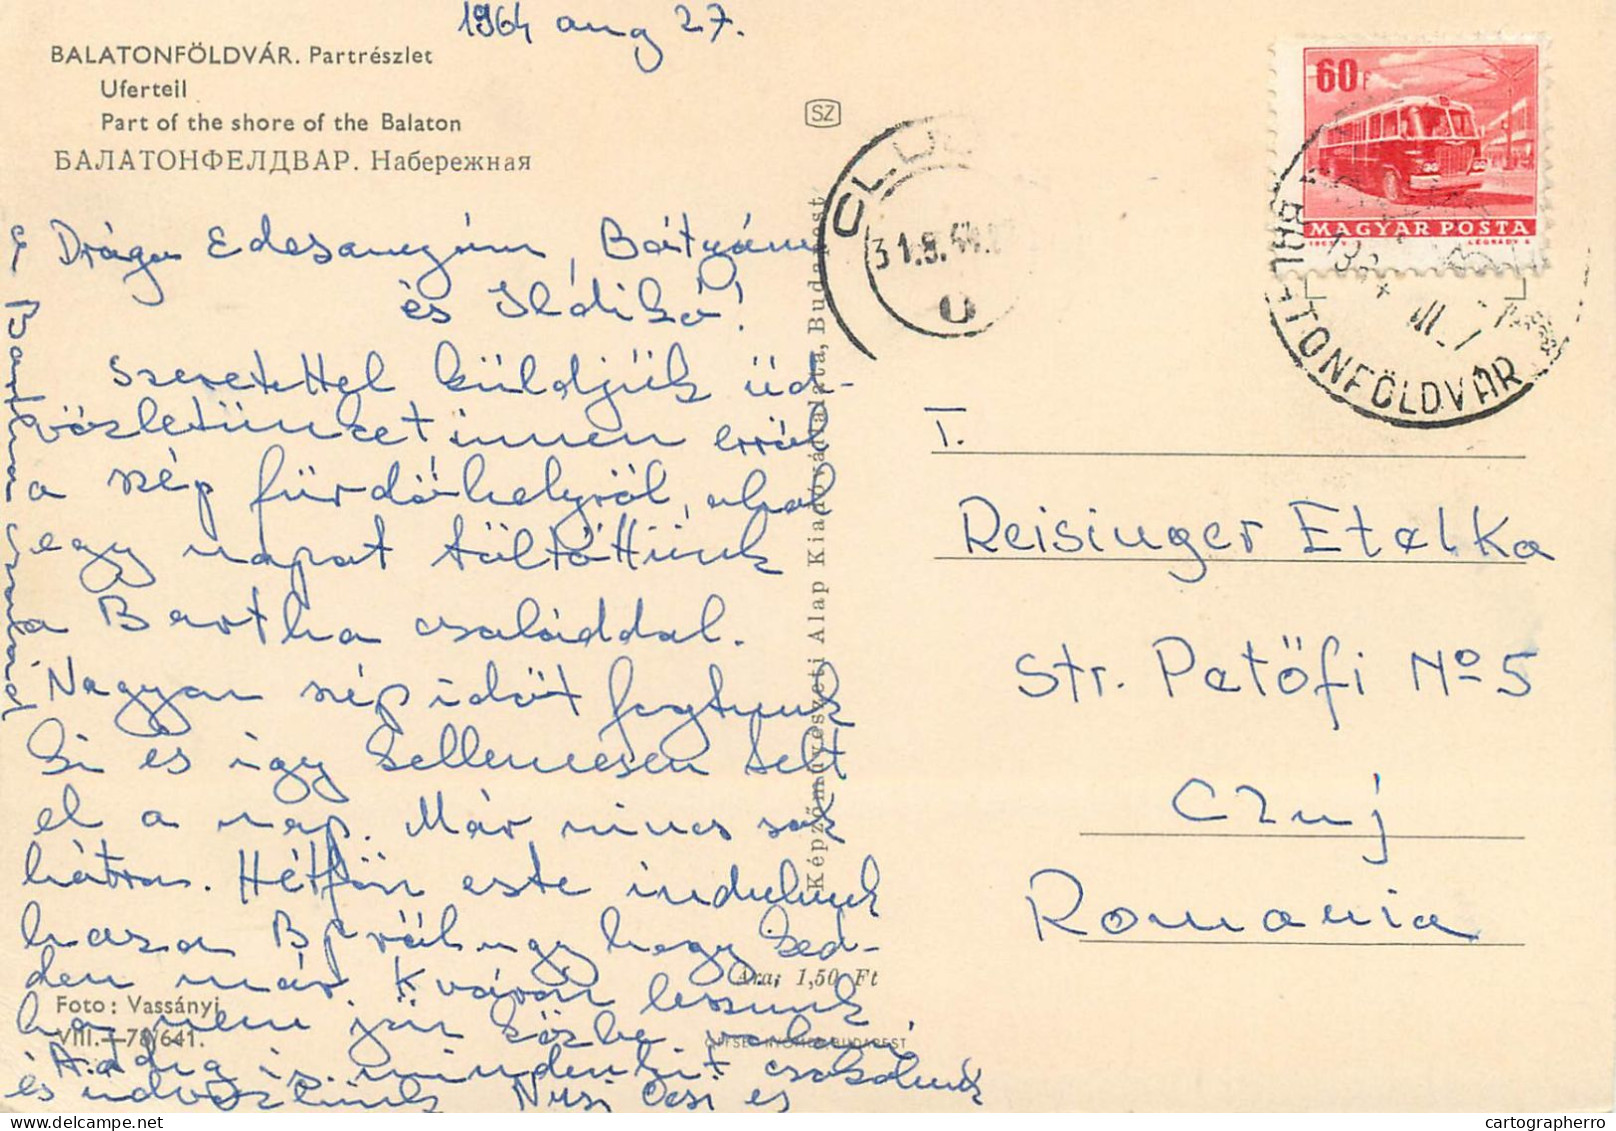 1964 aug 27.
BALATONFÖLDVÁR. Partrészlet
Uferteil
Part of the shore of the Balaton
БАЛАТОНФЕЛДВАР. Набережная
SZ
60f
MAGYAR POSTA
LÉGRÁDY S.
BALATONFÖLDVÁR
CLUJ
31.8.64
Drága Edesanyám, Bátyám
és Ildikó!
Szeretettel küldjük üd-
vözletünket innen erről
a szép fürdőhelyről, ahol
egy napot töltöttünk
a Bertha családdal.
Nagyon szép időt fogtunk
ki és így kellemesen telt
el a nap. Már nincs sok
hátra. Hétfőn este indulunk
haza Bpről úgy hogy ked-
den már Kváron leszünk
ha nem jön közbe valami
Addig is mindenkit csókolunk
és üdvözlünk Nusi Öcsi és
a Bartha család
Képzőművészeti Alap Kiadóvállalata, Budapest
Ára: 1,50 Ft
Foto: Vassányi
VIII.—78/641.
OFFSET-NYOMDA, BUDAPEST
T.
Reisinger Etelka
Str. Petőfi No 5
Cluj
Romania
cartographerro